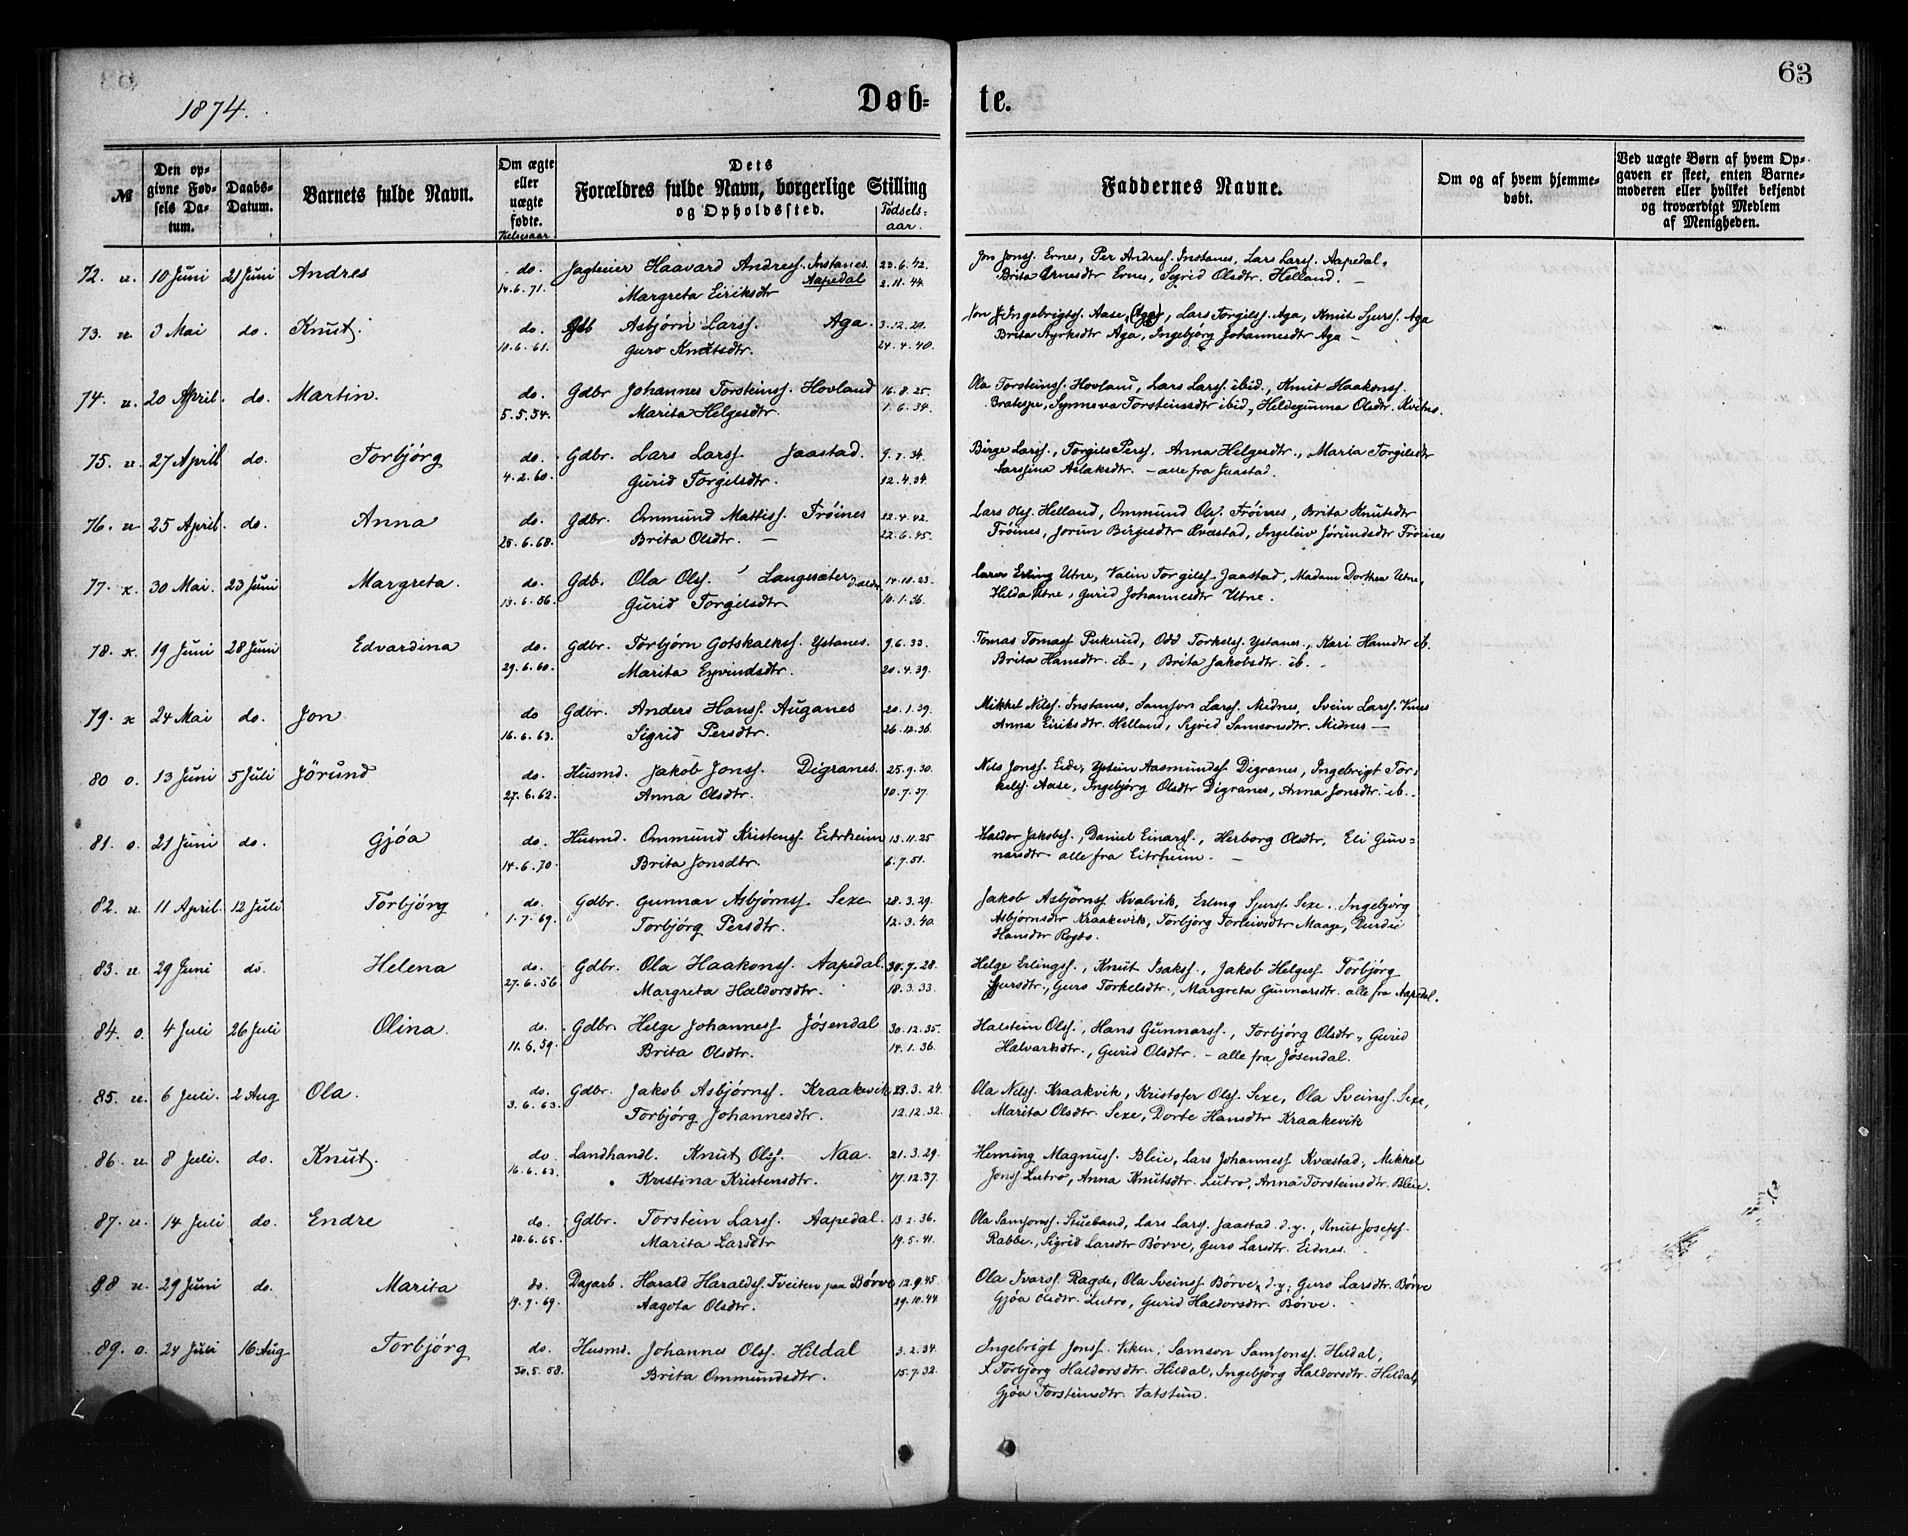 63
1874.
Døb= te.
№
Den opgivne Fødsels Datum.
Daabs-Datum.
Barnets fulde Navn.
Om ægte eller uægte fødte.
Vielsesaar
Dets Forældres fulde Navn, borgerlige Stilling og Opholdssted.
Fødsels-aar.
Faddernes Navne.
Om og af hvem hjemmedøbt.
Ved uægte Børn af hvem Opgaven er skeet, enten Barnemoderen eller hvilket bekjendt og troværdigt Medlem af Menigheden.
72. u. 10 Juni 21 Juni Andres do. Jagteier Haavard Andress. Instanes 23.6.42. Jon Jonss. Ernes, Per Andress. Instanes, Lars Larss. Aapedal,
14.6.71. Margreta Eiriksdtr Aapedal 2.11.44. Brita Ernesdtr Ernes, Sigrid Olsdtr. Helland. —
73. u. 3 Mai do. Knut. do. Gdb Asbjørn Larss. Aga. 3.12.20. Jon Ingebrigts. Aase, (Aga), Lars Torgilss. Aga, Knut Sjurss. Aga
10.6.61. Guro Knutsdtr. 24.4.40. Brita Styrksdtr Aga, Ingebjørg Johannesdtr Aga —
74. u. 20 April. do. Martin. do. Gdbr Johannes Torsteinss. Hovland 16.8.25. Ola Torsteinss. Hovland, Lars Larss. ibid., Knut Haakonss.
5.5.54. Marita Helgesdtr. 1.6.34. Bratespe, Synneva Torsteinsdtr ibid, Heldegunna Olsdtr. Kvitno.
75. u. 27 April do. Torbjørg do. Gdbr. Lars Larss. Jaastad. 9.7.34. Børge Larss., Torgils Perss. Anna Helgesdtr., Maria Torgilsdtr
4.2.60. Gurid Torgilsdtr. 12.4.34. Larssina Aslaksdtr. — alle fra Jaastad.
76. u 25 April. do. Anna do. Gdbr. Ommund Mattiss. Frøines 22.4.42. Lars Olss. Helland, Ommund Olss. Frøines, Brita Knutsdtr
25.6.68. Brita Olsdtr. — 22.6.45. Frøines, Jorun Birgesdtr Kvæstad, Ingeleiv Jørundsdtr Frøines
77. x. 30 Mai. 23 Juni Margreta. do. Gdb. Ola Olss. Langesæter 14.10.23. Erling Utne, Valin Torgilss. Jaastad, Madam Dorthea Utne,
13.6.56. Gurid Torgilsdtr 10.1.36. Hilda Utne, Gurid Johannesdtr Utne.
78. x. 19 Juni 28 Juni Edvardina do. Gdbr. Torbjørn Gotskalkss. Ystanes. 9.6.33. Tomas Tomass. Pukerud, Odd Torkelss. Ystanes., Kari Hansdtr ib.
29.6.60. Marita Eyvindsdtr. 20.4.39. Brita Hansdtr. ib —, Brita Jakobsdtr. ib. —
79. x 24 Mai do. Jon do Gdbr. Anders Hanss. Auganes 20.1.39. Mikkel Nilss. Instanes, Samson Larss. Midnes, Svein Larss. Vines
16.6.63. Sigrid Persdtr. 26.12.36. Anna Eiriksdtr. Helland, Sigrid Samsonsdtr. Midnes —
80 o. 13 Juni 5 Juli Jørund do. Husmd. Jakob Jonss. Digranes. 25.9.30. Nils Jonss. Eide, Ystein Aasmundss. Digranes, Ingebrigt Tor-
27.6.62. Anna Olsdtr. 10.7.37. kelss. Aase, Ingebjørg Olsdtr Digranes, Anna Jonsdtr. ib. —
81. o. 21 Juni do. Gjøa do. Husmd. Ommund Kristenss. Eitrheim 13.11.25 Haldor Jakobss., Daniel Einarss., Herborg Olsdtr, Eli Gun=
14.6.70. Brita Jonsdtr. 6.7.51. narsdtr alle fra Eitrheim. —
82. u. 11 April. 12 Juli Torbjørg do. Gdbr. Gunnar Asbjørns. Sexe 28.3.29. Jakob Asbjørnss Kvalvik, Erling Sjurss. Sexe. Ingebjørg
1.7.69. Torbjørg Persdtr. 12.3.40. Asbjørnsdtr Kraakevik, Torbjørg Torleivsdtr Maage, Durdei
Hansdtr Rogdo.
83. u. 29 Juni do. Helena do. Gdbr. Ola Haakonss. Aapedal. 30.7.28. Helge Erlingss., Knut Isakss., Jakob Helgess Torbjørg
27.6.56 Margreta Haldorsdtr. 18.3.33. Sjursdtr., Guro Torkelsdtr., Margreta Gunnarsdtr. alle fra Aapedal.
84. o. 4 Juli 26 Juli Olina. do. Gdbr. Helge Johanness. Jøsendal 30.12.35. Halstein Olss., Hans Gunnarss., Torbjørg Olsdtr., Gurid
11.6.59. Brita Olsdtr. 14.1.36. Halvardsdtr., Gurid Olsdtr. — alle fra Jøsendal.
85. u. 6 Juli. 2 Aug Ola. do. Gdbr. Jakob Asbjørnss. Kraakevik 23.3.24. Ola Nilss. Kraakvik, Kristofer Olss. Sexe, Ola Sveinss. Sexe,
3.6.63. Torbjørg Johannesdtr. 12.12.32. Marita Olsdtr. Sexe, Dorte Hansdtr Kraakevik
86. u 8 Juli. do. Knut. do. Landhandl. Knut Olss. Naa. 21.3.29. Heming Magnuss. Bleie, Lars Johanness Kvæstad, Mikkel
16.6.63. Kristina Kristensdtr. 17.12.37. Jonss. Lutro, Anna Knutsdtr. Lutro, Anna Torsteinsdtr. Bleie.
87. u. 14 Juli do. Endre do. Gdbr. Torstein Larss. Aapedal. 13.2.36. Ola Samsonss. Stueland, Lars Larss. Jaastad d.y., Knut Josefss.
20.6.65. Marita Larsdtr 19.5.41. Rabbe., Sigrid Larsdtr Børve, Guro Larsdtr. Eidnes.
88 u. 29 Juni do. Marita do. Dagarb. Harald Haraldss. Tveiten paa Børve 12.9.45 Ola Ivarss. Ragde, Ola Sveinss Børve, d.y; Guro Larsdtr. Børve
19.7.69. Aagota Olsdtr. 29.10.44 Gjøa Olsdtr. Lutro, Gurid Haldorsdtr. Børve.
89. o. 24 Juli 16 Aug Torbjørg do. Husmd. Johannes Olss. Hildal 3.2.34. Ingebrigt Jonss. Viken, Samson Samsonss. Hildal,
30.5.58. Brita Ommundsdtr. 15.7.32. Torbjørg Haldorsdtr. Hildal, Ingebjørg Haldorsdtr. Hildal,
Gjøa Torsteinsdtr. Vatstun.